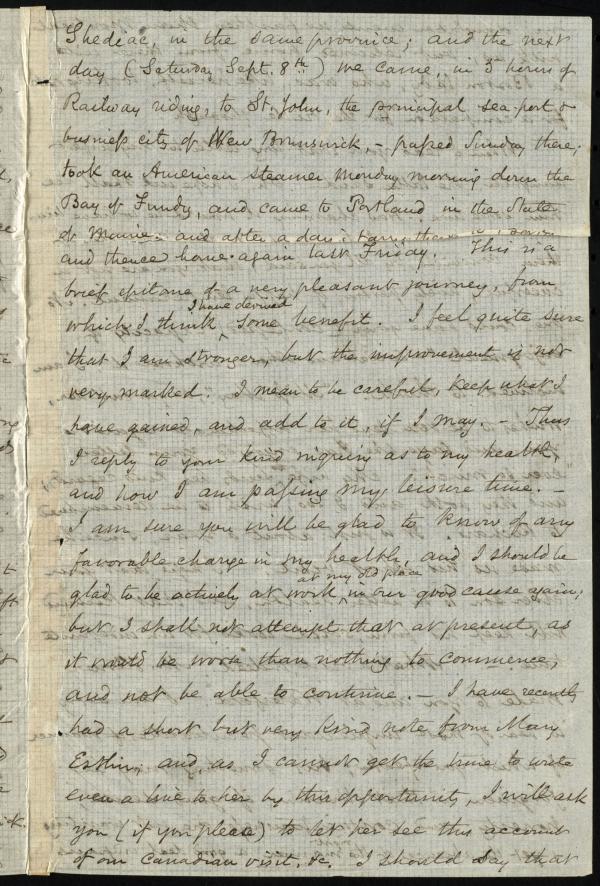 Shediac, in the same province; and the next
day (Saturday Sept. 8th) we came, in 5 hours of
Railway riding, to St. John, the principal sea-port &
business city of New Brunswick, - passed Sunday there;
took an American steamer Monday morning down the
Bay of Fundy, and came to Portland in the State
of Maine and after a day's
and thence home again last Friday. This is a
brief epitome of a very pleasant journey, from
which I think I have derived some benefit. I feel quite sure
that I am stronger, but the improvement is not
very marked. I mean to be careful, keep what I
have gained, and add to it, if I may. - Thus
I reply to your kind inquiry as to my health,
and how I am passing my leisure time. -
I am sure you will be glad to know of any
favorable change in my health, and I should be
glad to be actively at work at my old place in our good cause again;
but I shall not attempt that at present, as
it would be worse than nothing to commence,
and not be able to continue. - I have recently
had a short but very kind note from Mary
Estlin; and, as I cannot get the time to write
even a line to her by this opportunity, I will ask
you (if you please) to let her see this account
of our Canadian visit, &c. I should say that